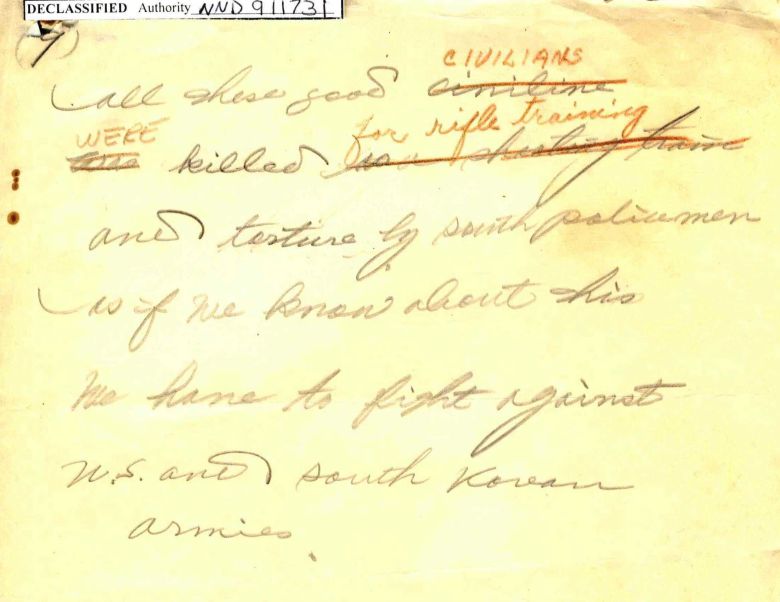 DECLASSIFIED Authority NND 911731
9
CIVILIANS
all these good civiline
WERE for rifle training
are killed as a shooting traine
and torture by south policemen
as if we know about this
We have to fight against
U.S. and south Korean
armies.